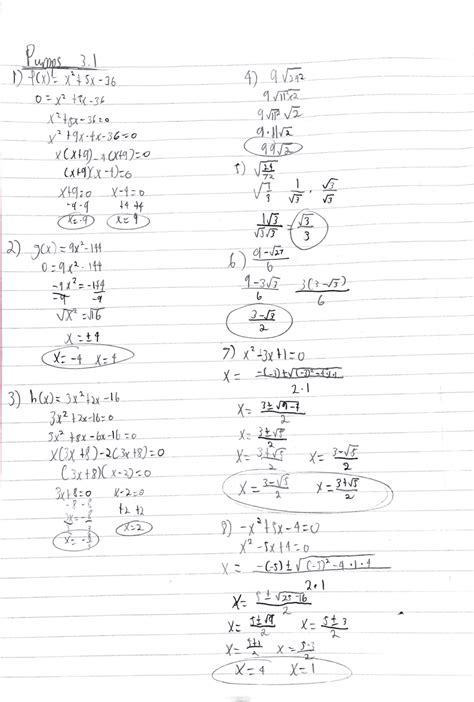 Pumas 3.1
1) f(x) = x² + 5x - 36
0 = x² + 5x - 36
x² + 5x - 36 = 0
x² + 9x - 4x - 36 = 0
x(x+9) - 4(x+9) = 0
(x+9)(x-4) = 0
x+9=0 x-4=0
-9 -9 +4 +4
x=-9
2) g(x) = 9x² - 144
0 = 9x² - 144
√x² = √16
x = ±4
x = -4 x = 4
3) h(x) = 3x² + 2x - 16
3x² + 2x - 16 = 0
3x² + 8x - 6x - 16 = 0
x(3x+8) - 2(3x+8) = 0
(3x+8)(x-2) = 0
3x+8=0 x-2=0
-8 -8 +2 +2
x=2
4) 9√242
9√11²·2
9√11² √2
9·11√2
99√2
5) √24/72
1/√3 · √3/√3
1√3/√3√3 = √3/3
6) 9-√27/6
9-3√3/6 3(3-√3)/6
3-√3/2
7) x² - 3x + 1 = 0
2·1
x = 3±√5/2
x = 3+√5/2 x = 3-√5/2
x = 3-√5/2 x = 3+√5/2
8) -x² + 5x - 4 = 0
x² - 5x + 4 = 0
x = -(-5) ± √(-5)² - 4·1·4
2·1
x = 5 ± √25-16/2
x = 5±√9/2 x = 5±3/2
x = 5+3/2 x = 5-3/2
x = 4 x = 1